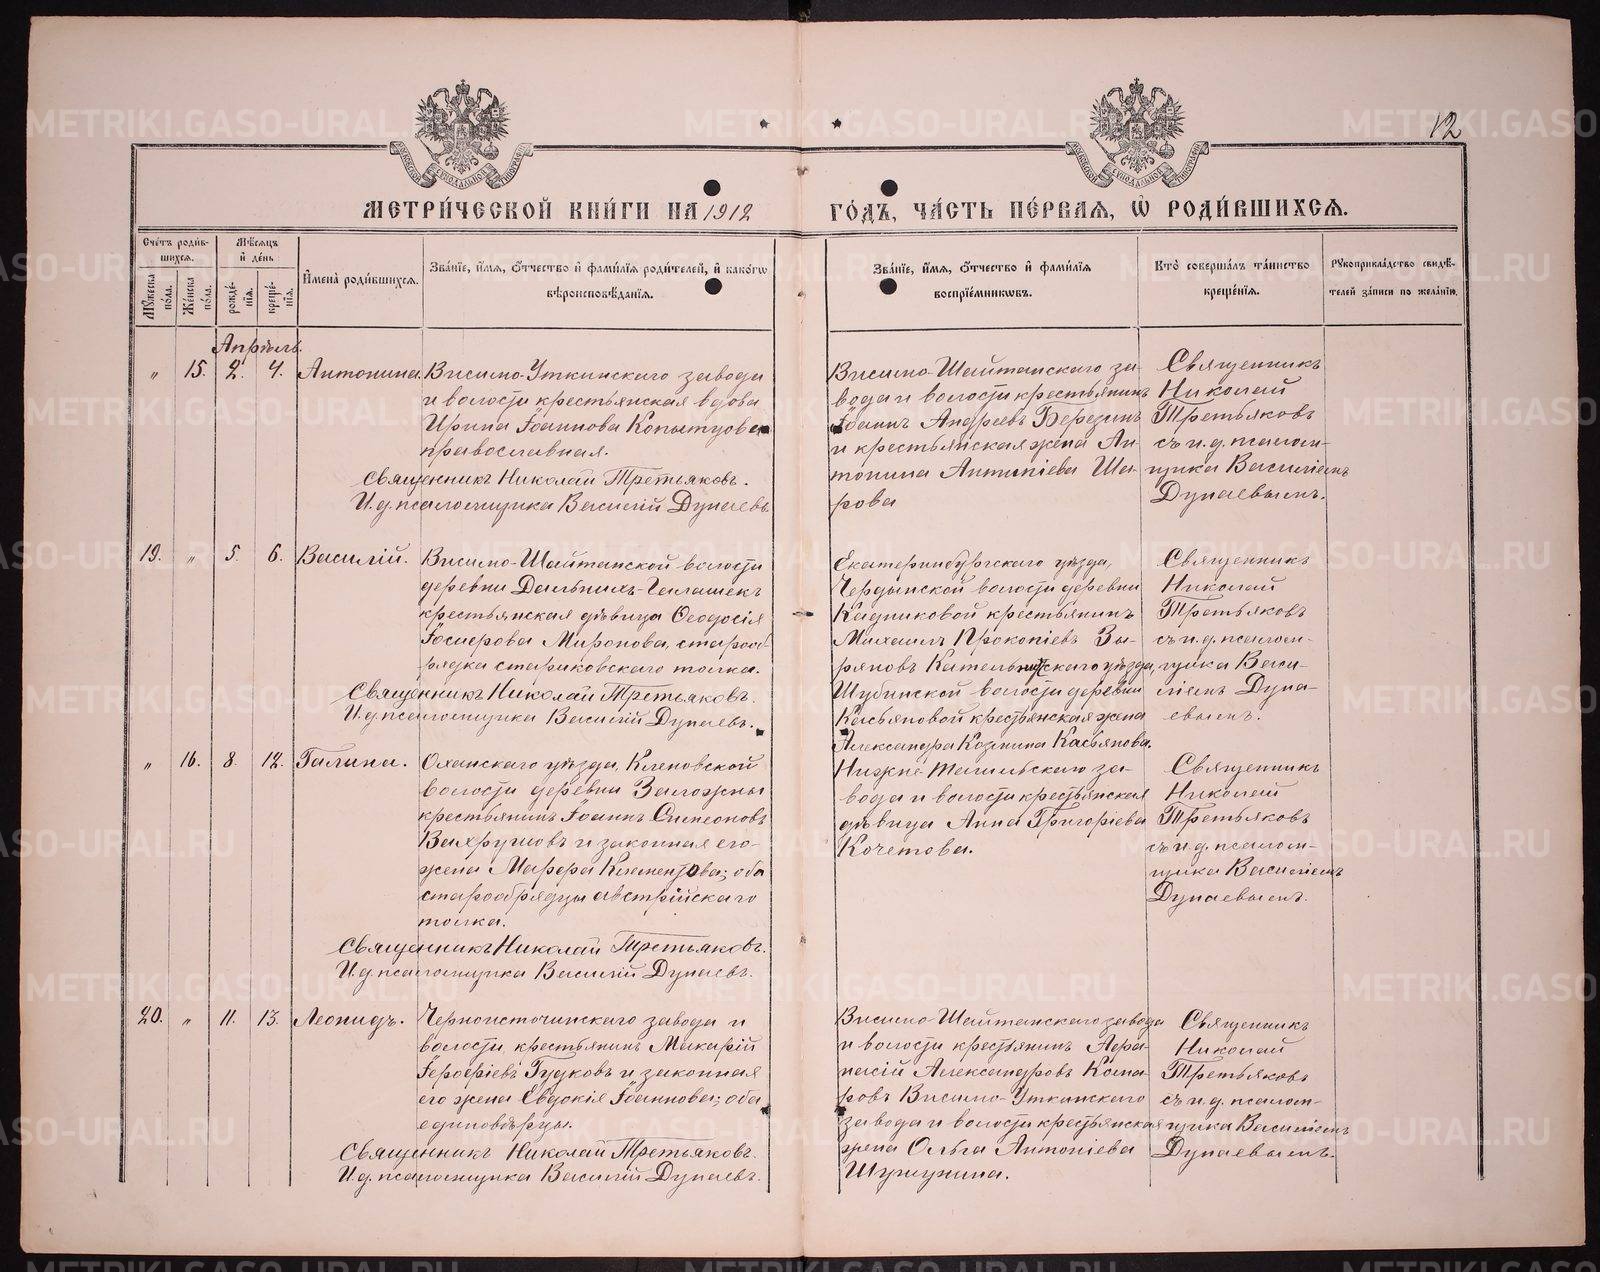 12
МЕТРИ́ЧЕСКОЙ КНИ́ГИ НА 1912
ГО́ДЪ, ЧА́СТЬ ПЕ́РВАЯ, Ѽ РОДИ́ВШИХСЯ.
Сче́тъ роди́в-
шихся.
Мꙋ́жеска по́ла.
Же́нска по́ла.
Мѣ́сяцъ
и҆ де́нь
рожде́нїя.
креще́нїя.
И҆мена̀ роди́вшихся.
Зва́нїе, и҆́мя, ѻ҆́тчество и҆ фами́лїя роди́телей, и҆ како́гѡ
вѣроисповѣ́данїя.
Зва́нїе, и҆́мя, ѻ҆́тчество и҆ фами́лїя
воспрїе́мникѡвъ.
Кто̀ соверша́лъ та́инство
креще́нїя.
Рꙋкоприкла́дство свидѣ́-
телей за́писи по жела́нїю.
Апрѣль.
„ 15. 2. 4. Антонина.
Висимо-Уткинскаго завода
и волости крестьянская вдова
Ирина Іоаннова Копытцова
православная.
Священникъ Николай Третьяковъ.
И.д. псаломщика Василій Дунаевъ.
Висимо-Шайтанскаго за-
вода и волости крестьянинъ
Іоаннъ Андреевъ Березинъ
и крестьянская жена Ан-
тонина Антоніева Ша-
рова
Священникъ
Николай
Третьяковъ
съ и.д. псалом-
щика Василіемъ
Дунаевымъ.
19. „ 5. 6. Василій.
Висимо-Шайтанской волости
деревни Дальнихъ-Галашекъ
крестьянская дѣвица Ѳеодосія
Іосиерова Миронова, старооб-
рядка стариковскаго толка.
Священникъ Николай Третьяковъ.
И.д. псаломщика Василій Дунаевъ.
Екатеринбургскаго уѣзда,
волости деревни
Кадниковой крестьянинъ
Михаилъ Прокопіевъ Зы-
ряновъ Котельническаго уѣзда,
Шубинской волости деревни
Касьяновой крестьянская жена
Александра Козмина Касьянова.
Священникъ
Николай
Третьяковъ
съ и.д. псалом-
щика Васи-
ліемъ Дуна-
евымъ.
„ 16. 8. 12. Галина.
Оханскаго уѣзда, Кленовской
волости деревни Заложны
крестьянинъ Іоаннъ Симеоновъ
Вахрушовъ и законная его
жена Марѳа Климентова; оба
старообрядцы австрійскаго
толка.
Священникъ Николай Третьяковъ.
И.д. псаломщика Василій Дунаевъ.
Нижне Тагильскаго за-
вода и волости крестьянская
дѣвица Анна Григоріева
Кочетова.
Священникъ
Николай
Третьяковъ
съ и.д. псалом-
щика Василіемъ
Дунаевымъ.
20. „ 11. 13. Леонидъ.
Черноисточинскаго завода и
волости, крестьянинъ Макарій
Іероѳіевъ Гудковъ и законная
его жена Евдокія Іоаннова; оба
единовѣрцы.
Священникъ Николай Третьяковъ.
И.д. псаломщика Василій Дунаевъ.
Висимо-Шайтанскаго завода
и волости крестьянинъ Аѳа-
насій Александровъ Кома-
ровъ Висимо-Уткинскаго
завода и волости крестьянская
жена Ольга Антоніева
Шушунина.
Священникъ
Николай
Третьяковъ
съ и.д. псалом-
щика Василіемъ
Дунаевымъ.
METRIKI.GASO-URAL.RU